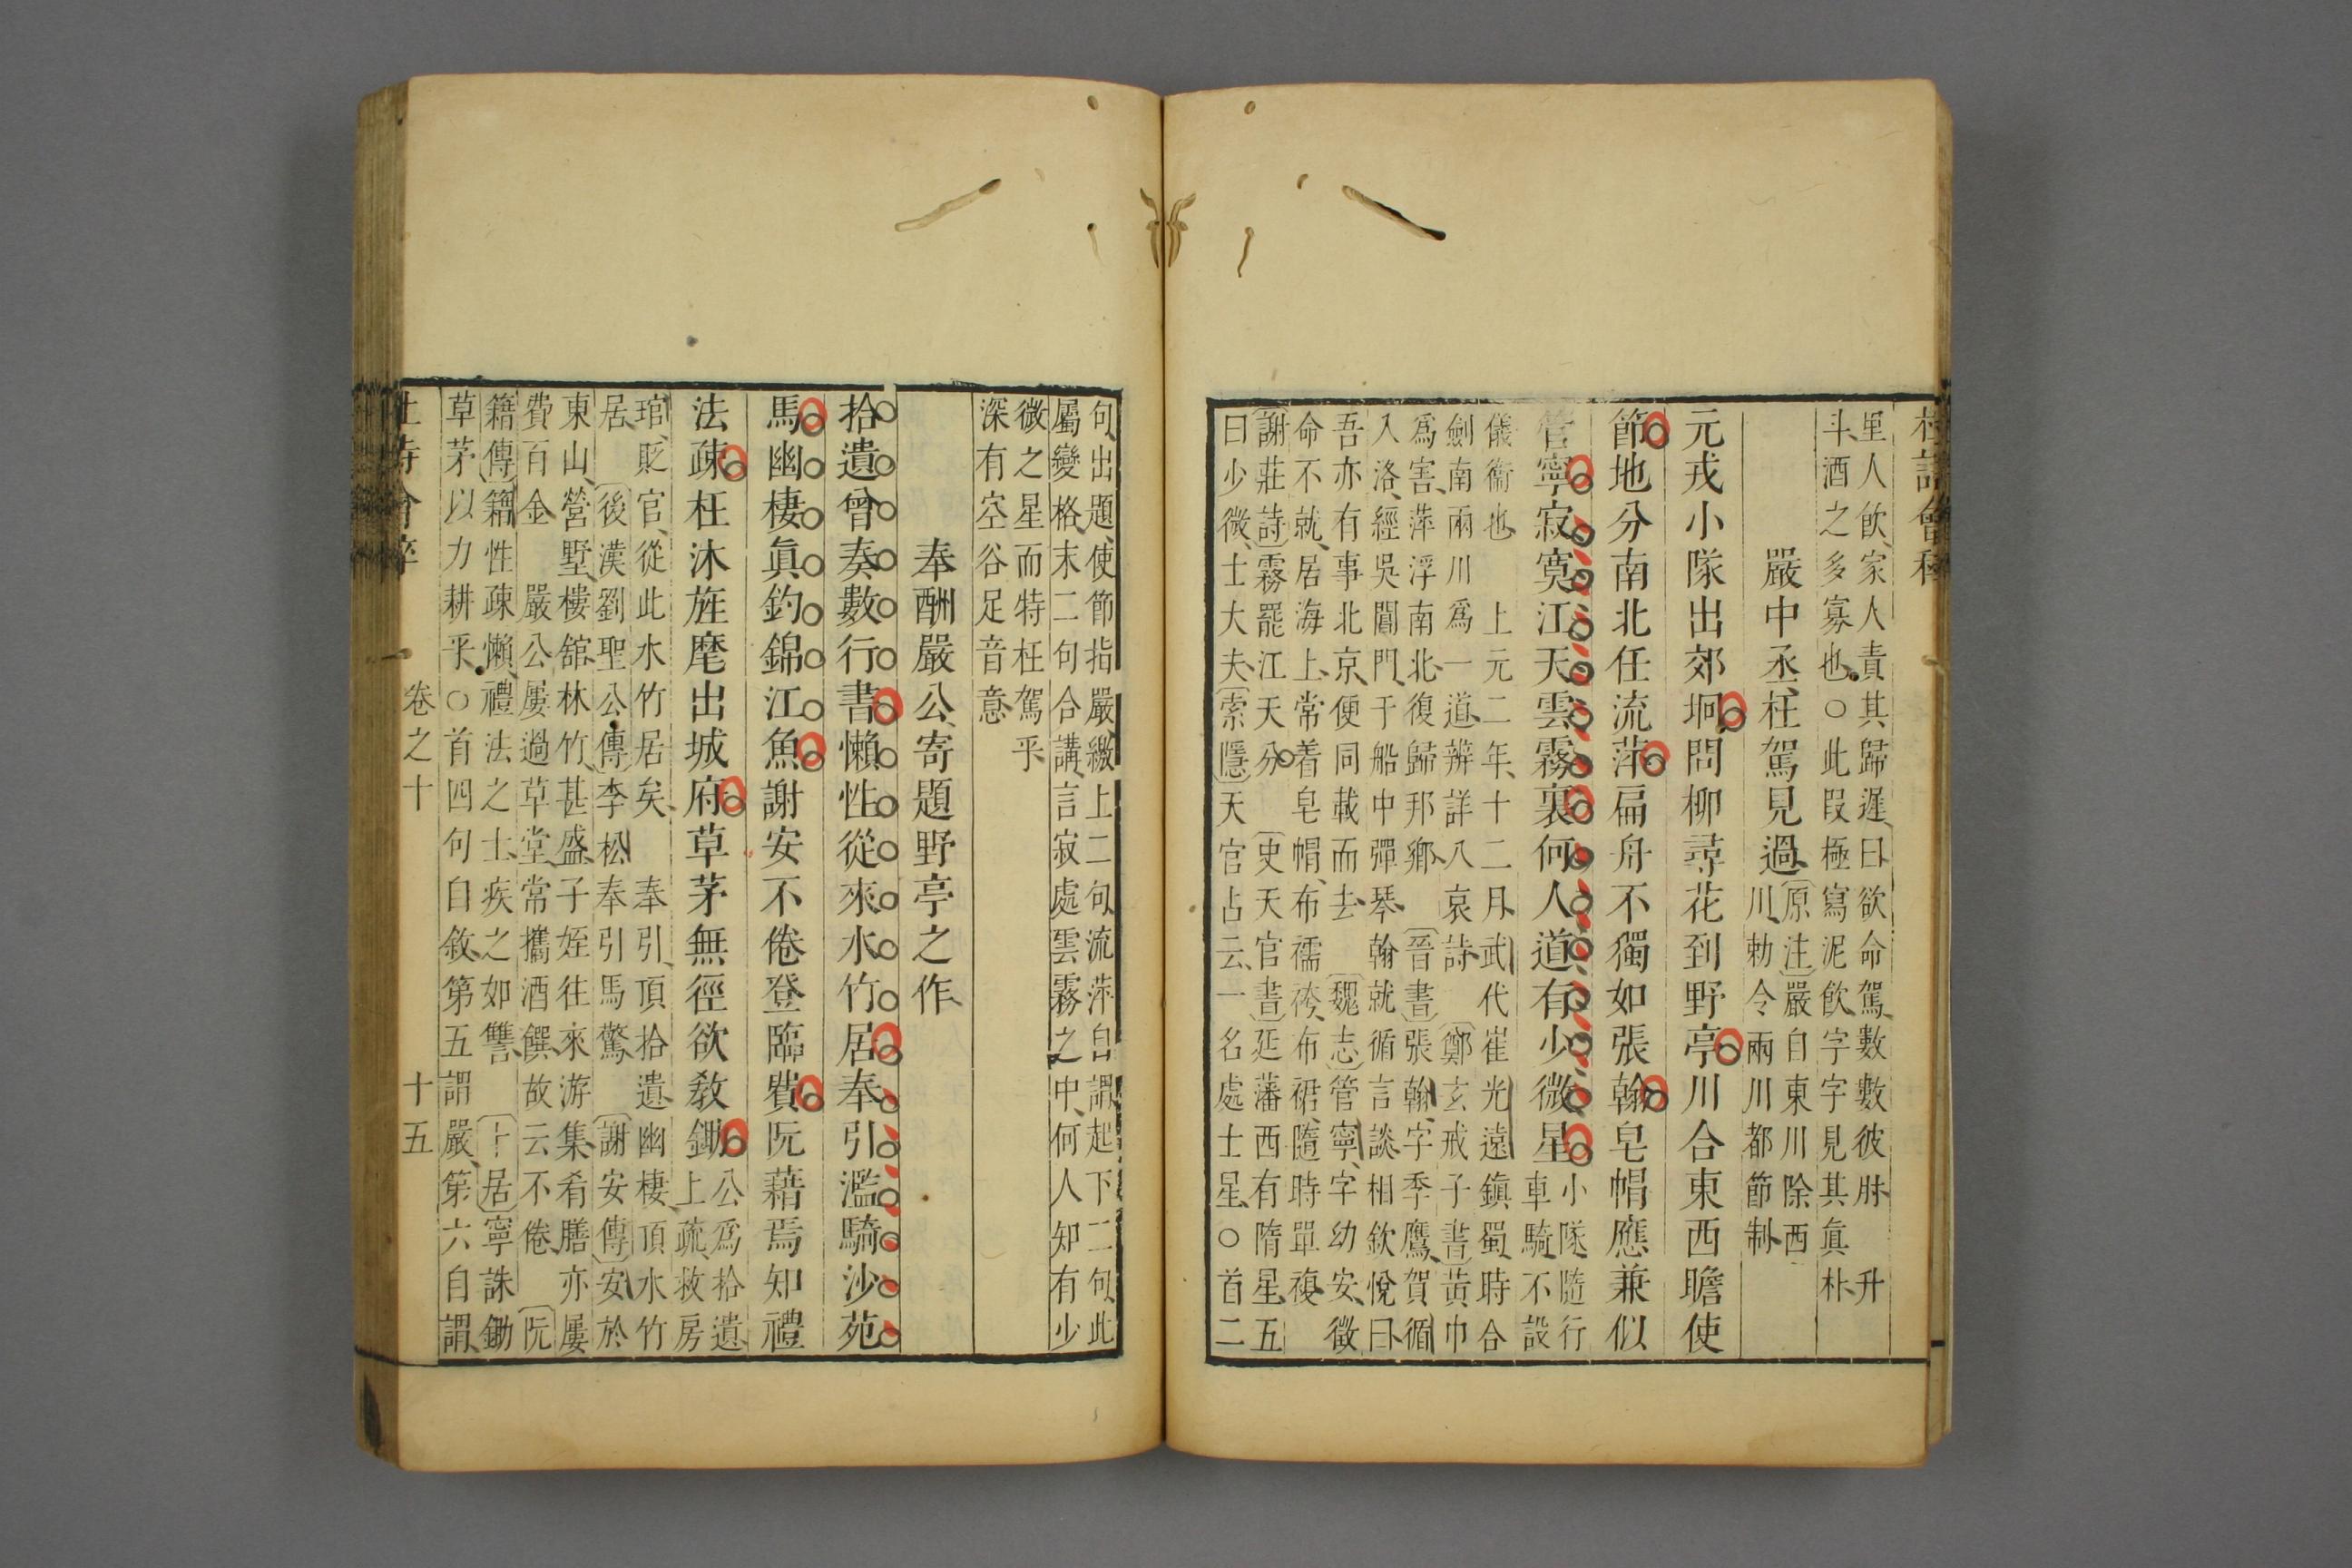 杜詩會稡
里人飲家人責其歸遲曰欲命駕數數彼肘 升
斗酒之多寡也○此叚極寫泥飲字字見其眞朴
嚴中丞枉駕見過
原注嚴自東川除西
川勅令兩川都節制
元戎小隊出郊坰問柳尋花到野亭川合東西瞻使
節地分南北任流萍扁舟不獨如張翰皂帽應兼似
管寧寂寞江天雲霧裏何人道有少微星
小隊隨行
車騎不設
儀衞也 上元二年十二月武代崔光遠鎭蜀時合
劍南兩川爲一道辨詳八哀詩 鄭玄戒子書黃巾
爲害萍浮南北復歸邦鄉 晉書張翰字季鷹賀循
入洛經吳閶門于船中彈琴翰就循言談相欽悅曰
吾亦有事北京便同載而去 魏志管寧字幼安徵
命不就居海上常着皂帽布襦袴布裙隨時單複
謝莊詩霧罷江天分 史天官書廷藩西有隋星五
曰少微士大夫索隱天官占云一名處士星○首二
句出題使節指嚴繳上二句流萍自謂起下二句此
屬變格末二句合講言寂處雲霧之中何人知有少
微之星而特枉駕乎
深有空谷足音意
奉酬嚴公寄題野亭之作
拾遺曾奏數行書懶性從來水竹居奉引濫騎沙苑
馬幽棲眞釣錦江魚謝安不倦登臨費阮藉焉知禮
法疎枉沐旌麾出城府草茅無徑欲敎鋤
公爲拾遺
上疏救房
琯貶官從此水竹居矣 奉引頂拾遺幽棲頂水竹
居 後漢劉聖公傳李松奉引馬驚 謝安傳安於
東山營墅樓舘林竹甚盛子姪往來游集肴膳亦屢
費百金 嚴公屢過草堂常攜酒饌故云不倦 阮
籍傳籍性疎懶禮法之士疾之如讐 卜居寧誅鋤
草茅以力耕乎○首四句自敘第五謂嚴第六自謂
卷之十 十五